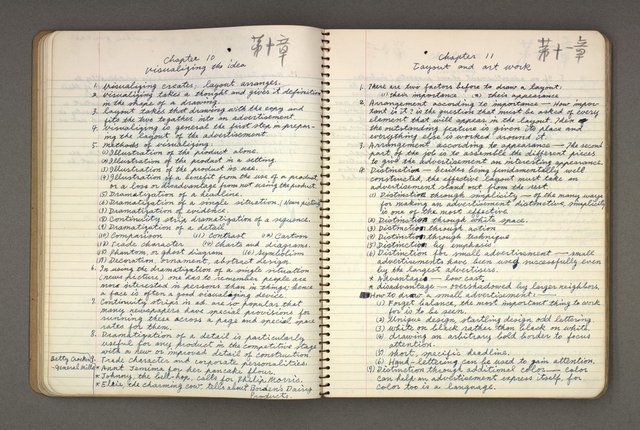 Chapter 10 第十章
Visualizing the idea
1. Visualizing creates, layout arranges.
2. Visualizing takes a thought and gives it definition
in the shape of a drawing.
3. Layout takes that drawing with the copy and
fits the two together into an advertisement.
4. Visualizing is general the first step in prepar-
ing the layout of the advertisement.
5. Methods of visualizing:
(1) Illustration of the product alone.
(2) Illustration of the product in a setting.
(3) Illustration of the product in use.
(4) Illustration of a benefit from the use of a product
or a loss or disadvantage from not using the product.
(5) Dramatization of a headline.
(6) Dramatization of a single situation (News picture)
(7) Dramatization of evidence
(8) Continuity strip dramatization of a sequence.
(9) Dramatization of a detail
(10) Comparison (11) Contrast (12) Cartoon
(13) Trade character (14) Charts and diagrams.
(15) Phantom, or ghost diagram (16) Symbolism
(17) Decoration ornament, abstract design.
6. In using the dramatization of a single situation
(news picture) one has to remember people are
more interested in persons than in things; hence
a face is often a good visualizing device
7. Continuity strips in ad. are so popular that
many newspapers have special provisions for
running these across a page and special space
rates for them.
8. Dramatization of a detail is particularly
useful for any product in the competitive stage
with a new or improved detail of construction.
Trade character and corporate personalities.
Betty Crocker,
General Mills
* Aunt Jemima for her pancake flour.
* Johnny, the bell-hop, calls for Philip Morris.
* Elsie, the charming cow, tells about Borden's Dairy
Products.
Chapter 11 第十一章
Layout and art work
1. There are two factors before to draw a layout:
(1) their importance (2) their appearance
2. Arrangement according to importance — How impor-
tant is it? is the question that must be asked of every
element that will appear in the layout, then
the outstanding feature is given its place and
everything else is worked around it.
3. Arrangement according to appearance — The second
part of the job is to assemble the different pieces
to give the advertisement an interesting appearance.
4. Distinction — besides being fundamentally well
constructed, the effective layout must take an
advertisement stand out from the rest.
(1) Distinction through simplicity — of the many ways
for making an advertisement distinctive, simplicity
is one of the most effective
(2) Distinction through white space.
(3) Distinction through action
(4) Distinction through technique
(5) Distinction by emphasis
(6) Distinction for small advertisement — small
advertisements have been used successfully even
by the largest advertisers.
* Advantage — low cost,
* disadvantage — overshadowed by larger neighbors.
How to draw a small advertisement:
(1) Forget balance, the most important thing to work
for is to be seen.
(2) Unique design, startling design odd lettering.
(3) White on black rather than black on white
(4) drawing an arbitrary bold border to focus
attention.
(5) short, specific headline.
(6) Hand-lettering can be used to gain attention.
(7) Distinction through additional color — color
can help an advertisement express itself, for
color too is a language.